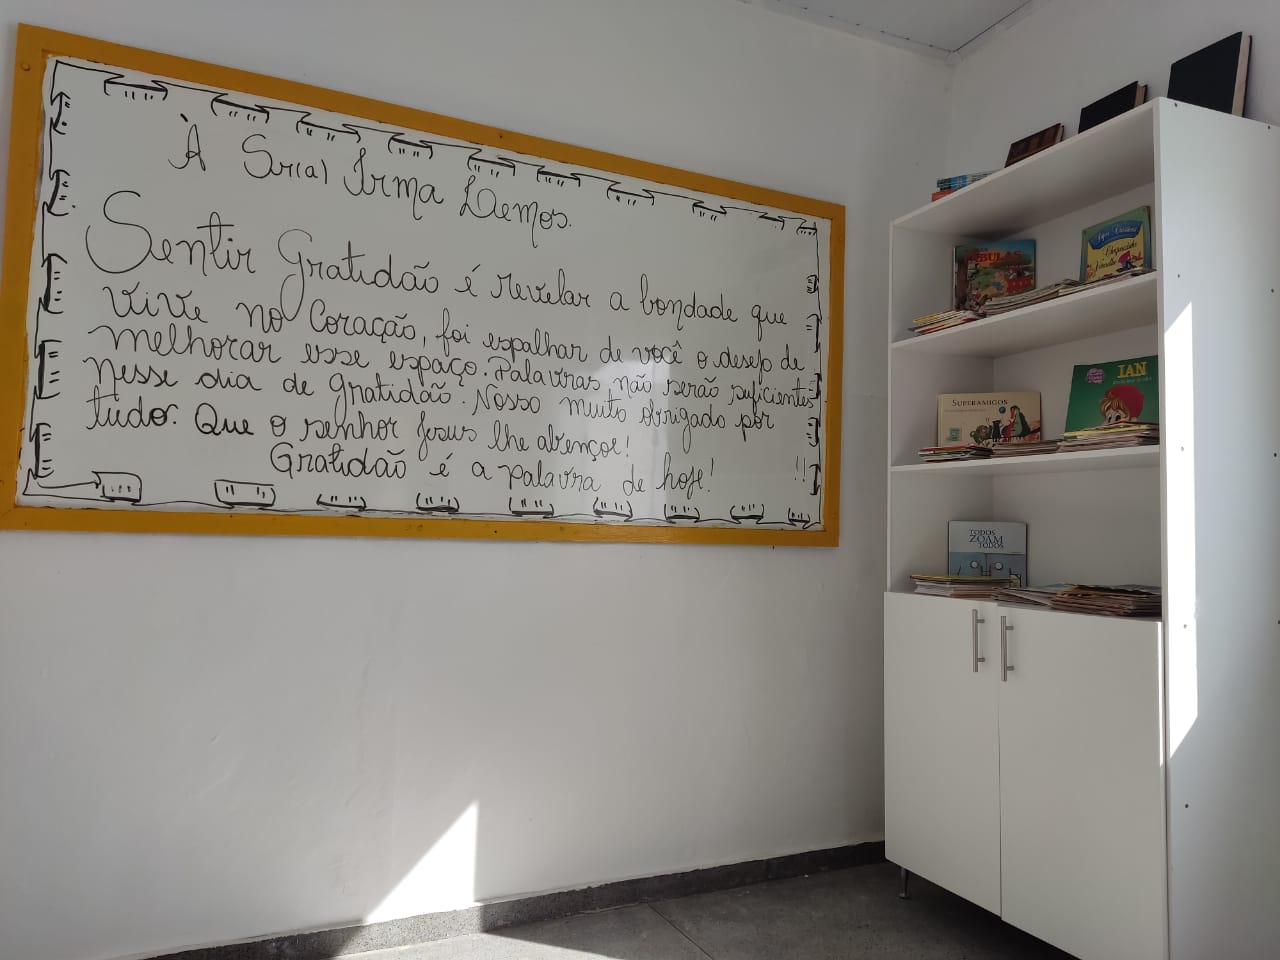 À Sr(a) Irma Lemos.
Sentir Gratidão é revelar a bondade que
vive no Coração, foi espalhar de você o desejo de
melhorar esse espaço. Palavras não serão suficientes
nesse dia de gratidão. Nosso muito obrigado por
tudo. Que o senhor Jesus lhe abençoe!
Gratidão é a palavra de hoje! !!
Chapeuzinho
Vermelho
SUPERAMIGOS
IAN
TODOS
ZOAM
TODOS